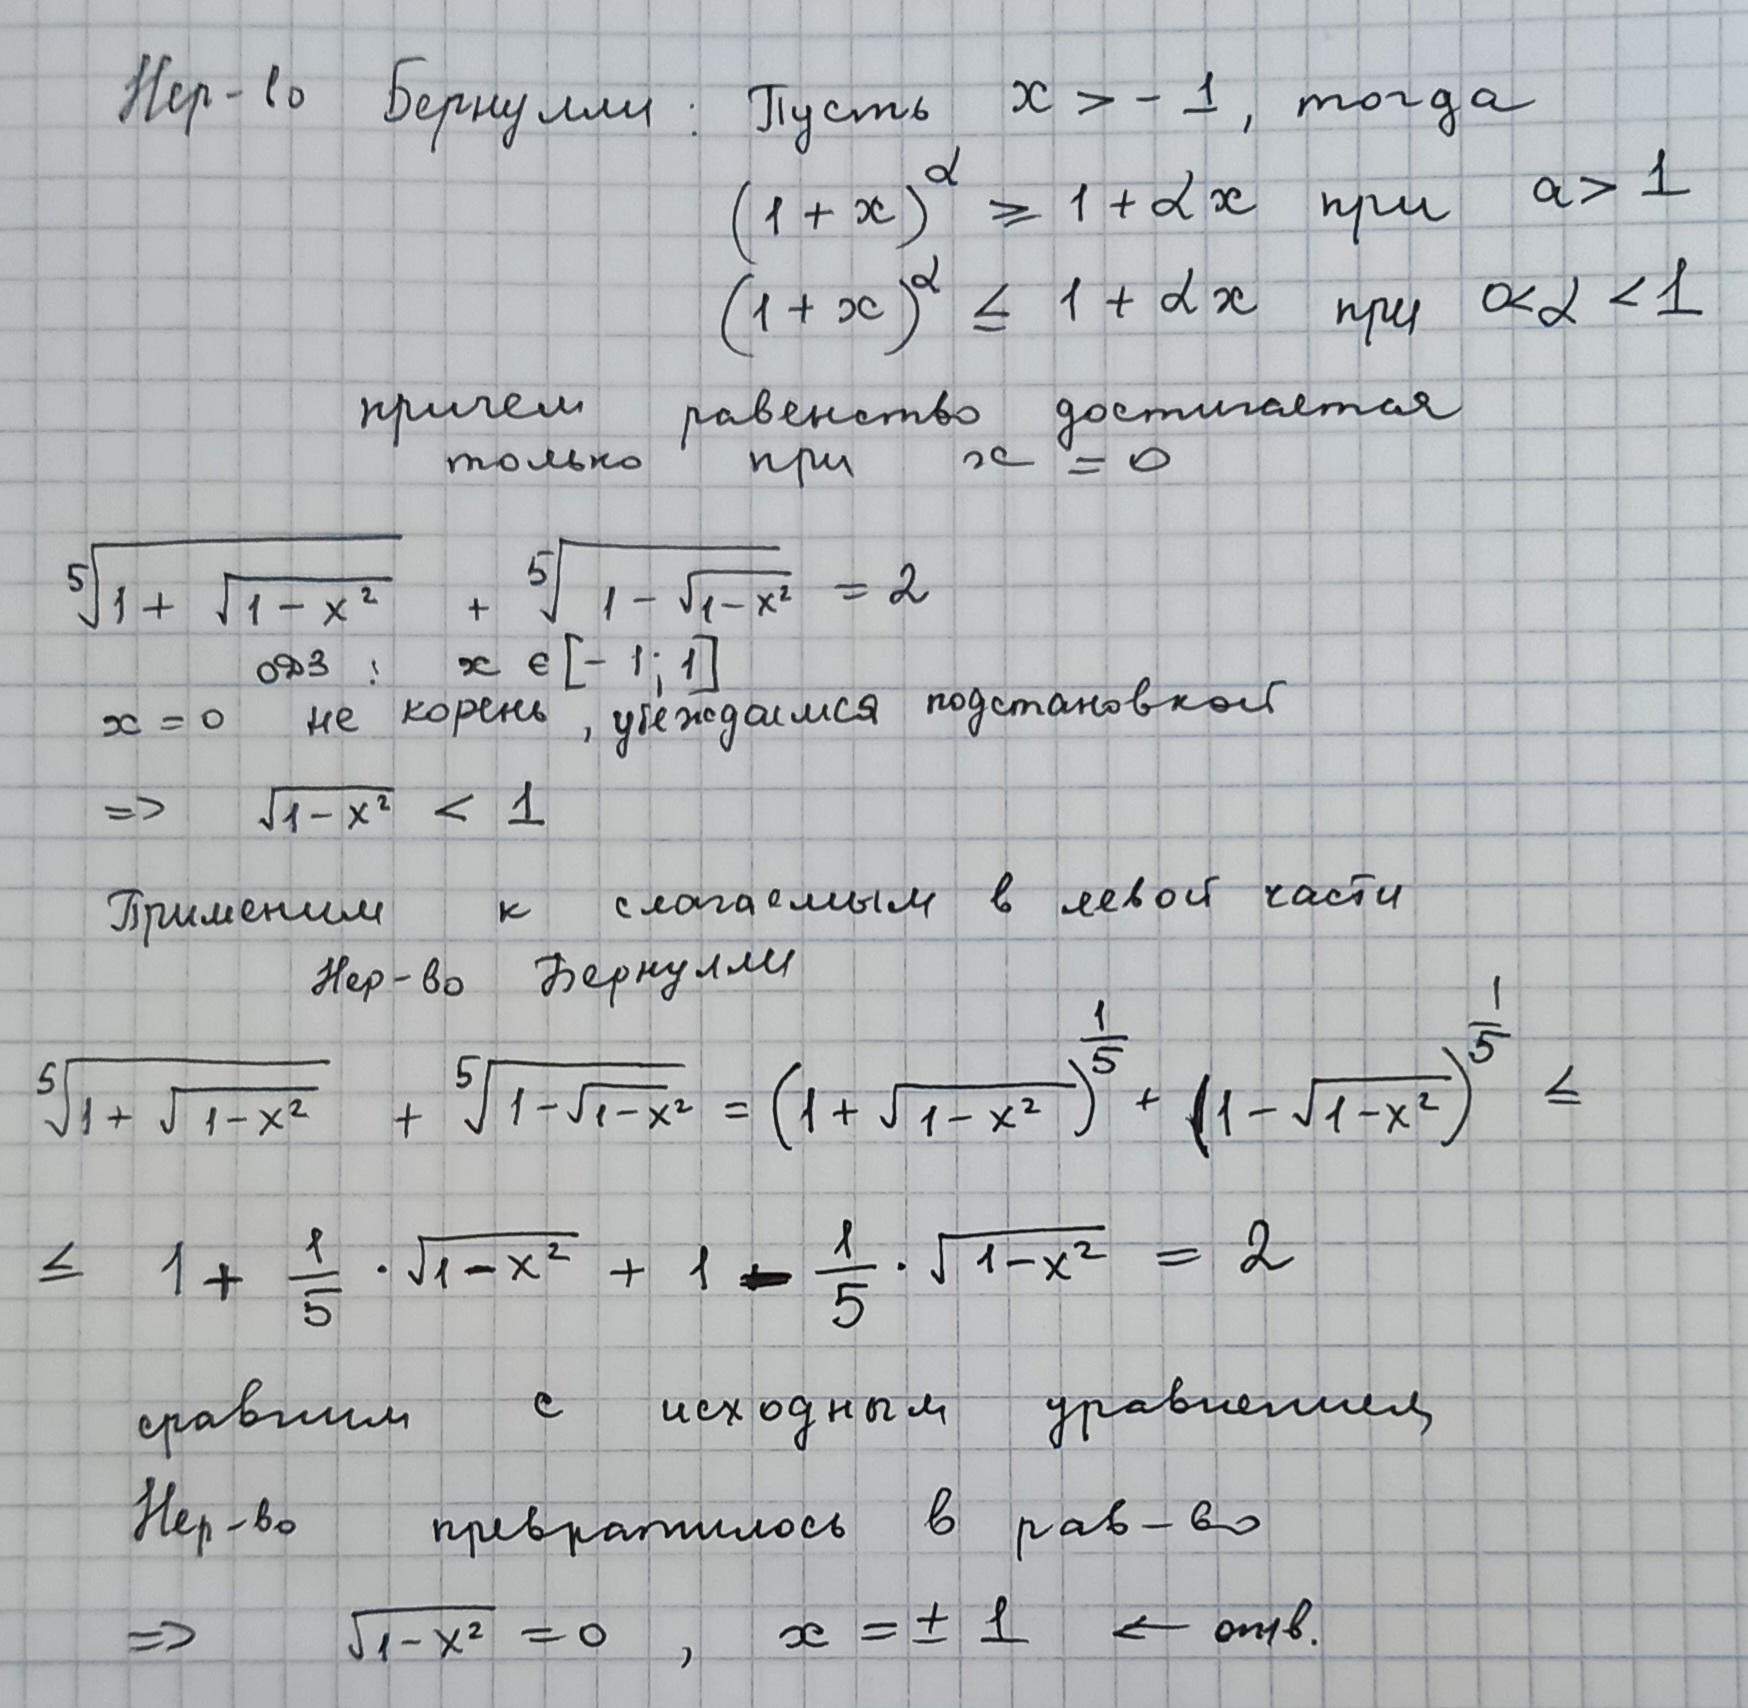 Нер-во Бернулли: Пусть x > -1, тогда
(1 + x)^α ⩾ 1 + αx при a > 1
(1 + x)^α ≤ 1 + αx при 0<α < 1
причем равенство достигается
только при x = 0
⁵√(1 + √(1 - x²)) + ⁵√(1 - √(1-x²)) = 2
ОДЗ: x ∈ [-1; 1]
x = 0 не корень, убеждаемся подстановкой
=> √(1-x²) < 1
Применим к слагаемым в левой части
Нер-во Бернулли
⁵√(1 + √(1-x²)) + ⁵√(1-√(1-x²)) = (1 + √(1-x²))^(1/5) + (1-√(1-x²))^(1/5) ≤
≤ 1 + 1/5 · √(1-x²) + 1 - 1/5 · √(1-x²) = 2
сравним с исходным уравнением,
Нер-во превратилось в рав-во
=> √(1-x²) = 0, x = ± 1 ← отв.